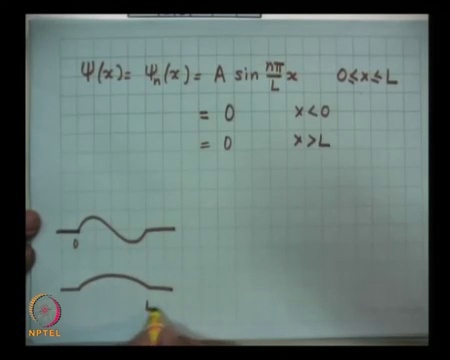 Ψ(x) = Ψn(x) = A sin nπ/L x 0≤x≤L
= 0 x<0
= 0 x>L
0
L
NPTEL